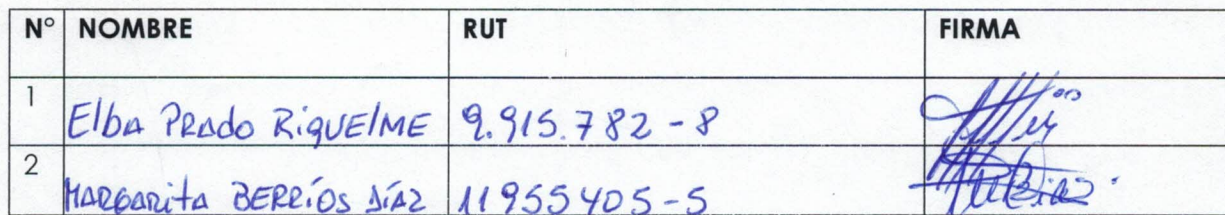 N° NOMBRE RUT FIRMA
1 Elba Prado Riquelme 9.915.782-8
2 Margarita Berríos Díaz 11955405-5